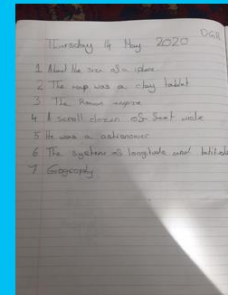 DGR
Thursday 14 May 2020
1 About the size of a iphone
2 The map was a clay tablet
3 The Roman empire
4 A scroll drawn of feet wide
5 He was a astronomer
6 The system of longitude and latitude
7 Geography